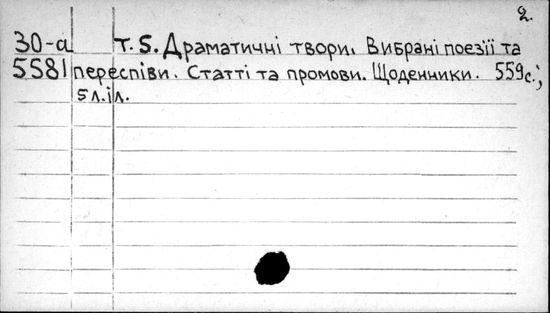 2.
30-а т. 5. Драматичні твори. Вибрані поезії та
5581 переспіви. Статті та промови. Щоденники. 559с.;
5 л. іл.